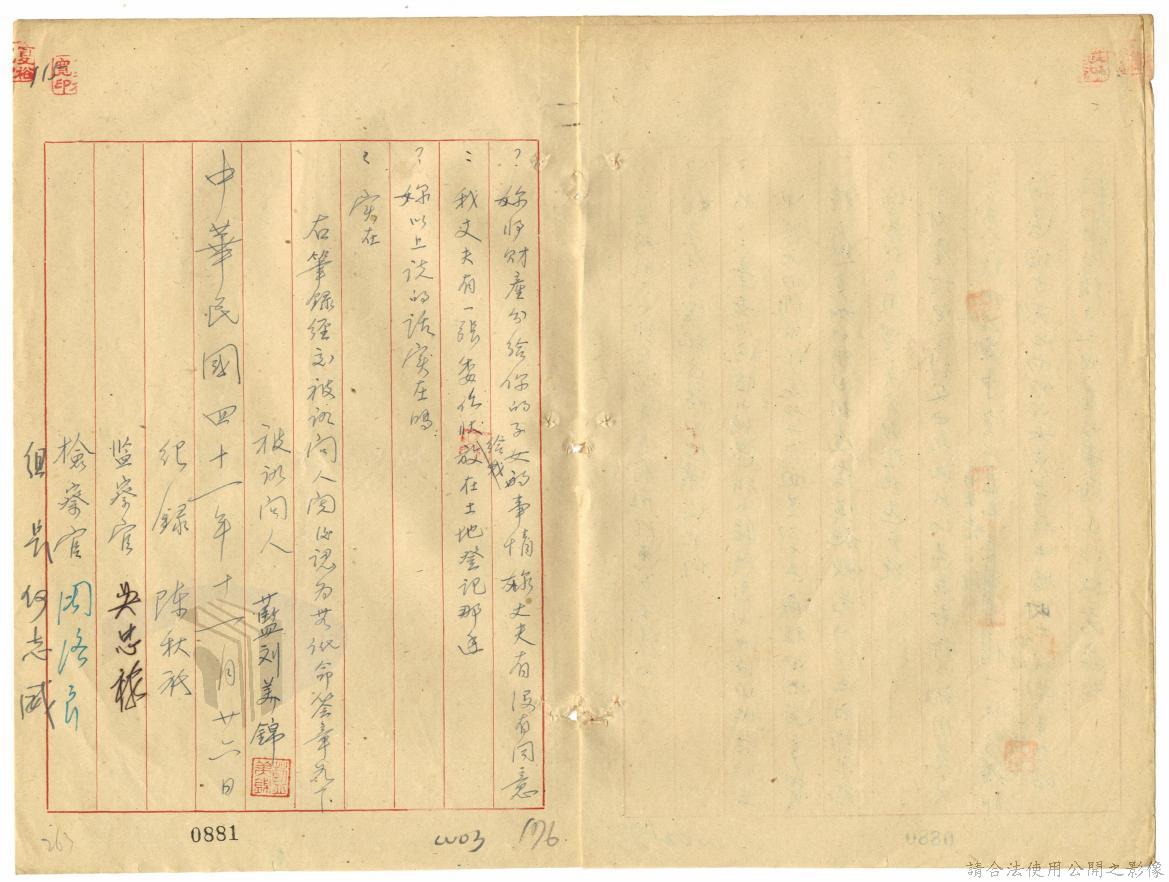 ？妳將財產分給你的子女的事情妳丈夫有沒有同意
：我丈夫有一張委任狀給我放在土地登記那邊
？妳以上說的話實在嗎？
：實在
右筆錄經交被訊問人閱後認為無訛命簽章於下
被訊問人 藍刘美錦
中華民國四十一年十一月廿六日
紀錄 陳秋
監察官 吳忠
檢察官
組長 何志威
0881
263
176
0880
請合法使用公開之影像